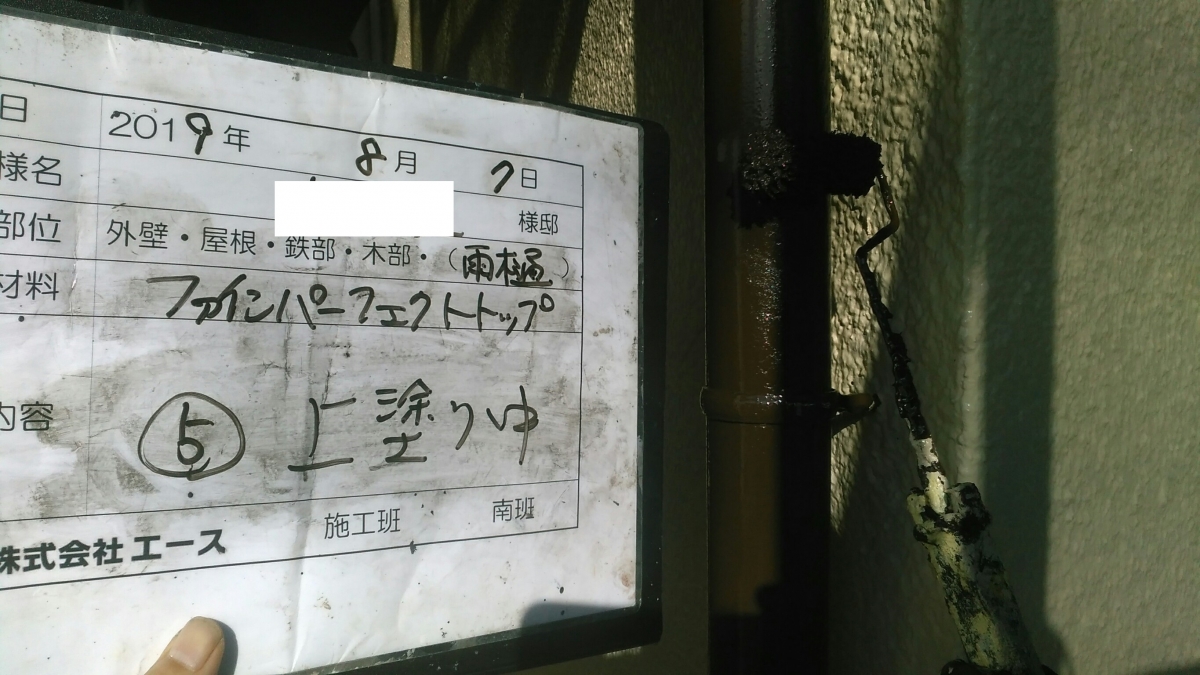 日 2019年 8月 7日
様名 様邸
部位 外壁・屋根・鉄部・木部・（雨樋）
材料 ファインパーフェクトトップ
内容 ⑤ 上塗り中
施工班 南班
株式会社エース